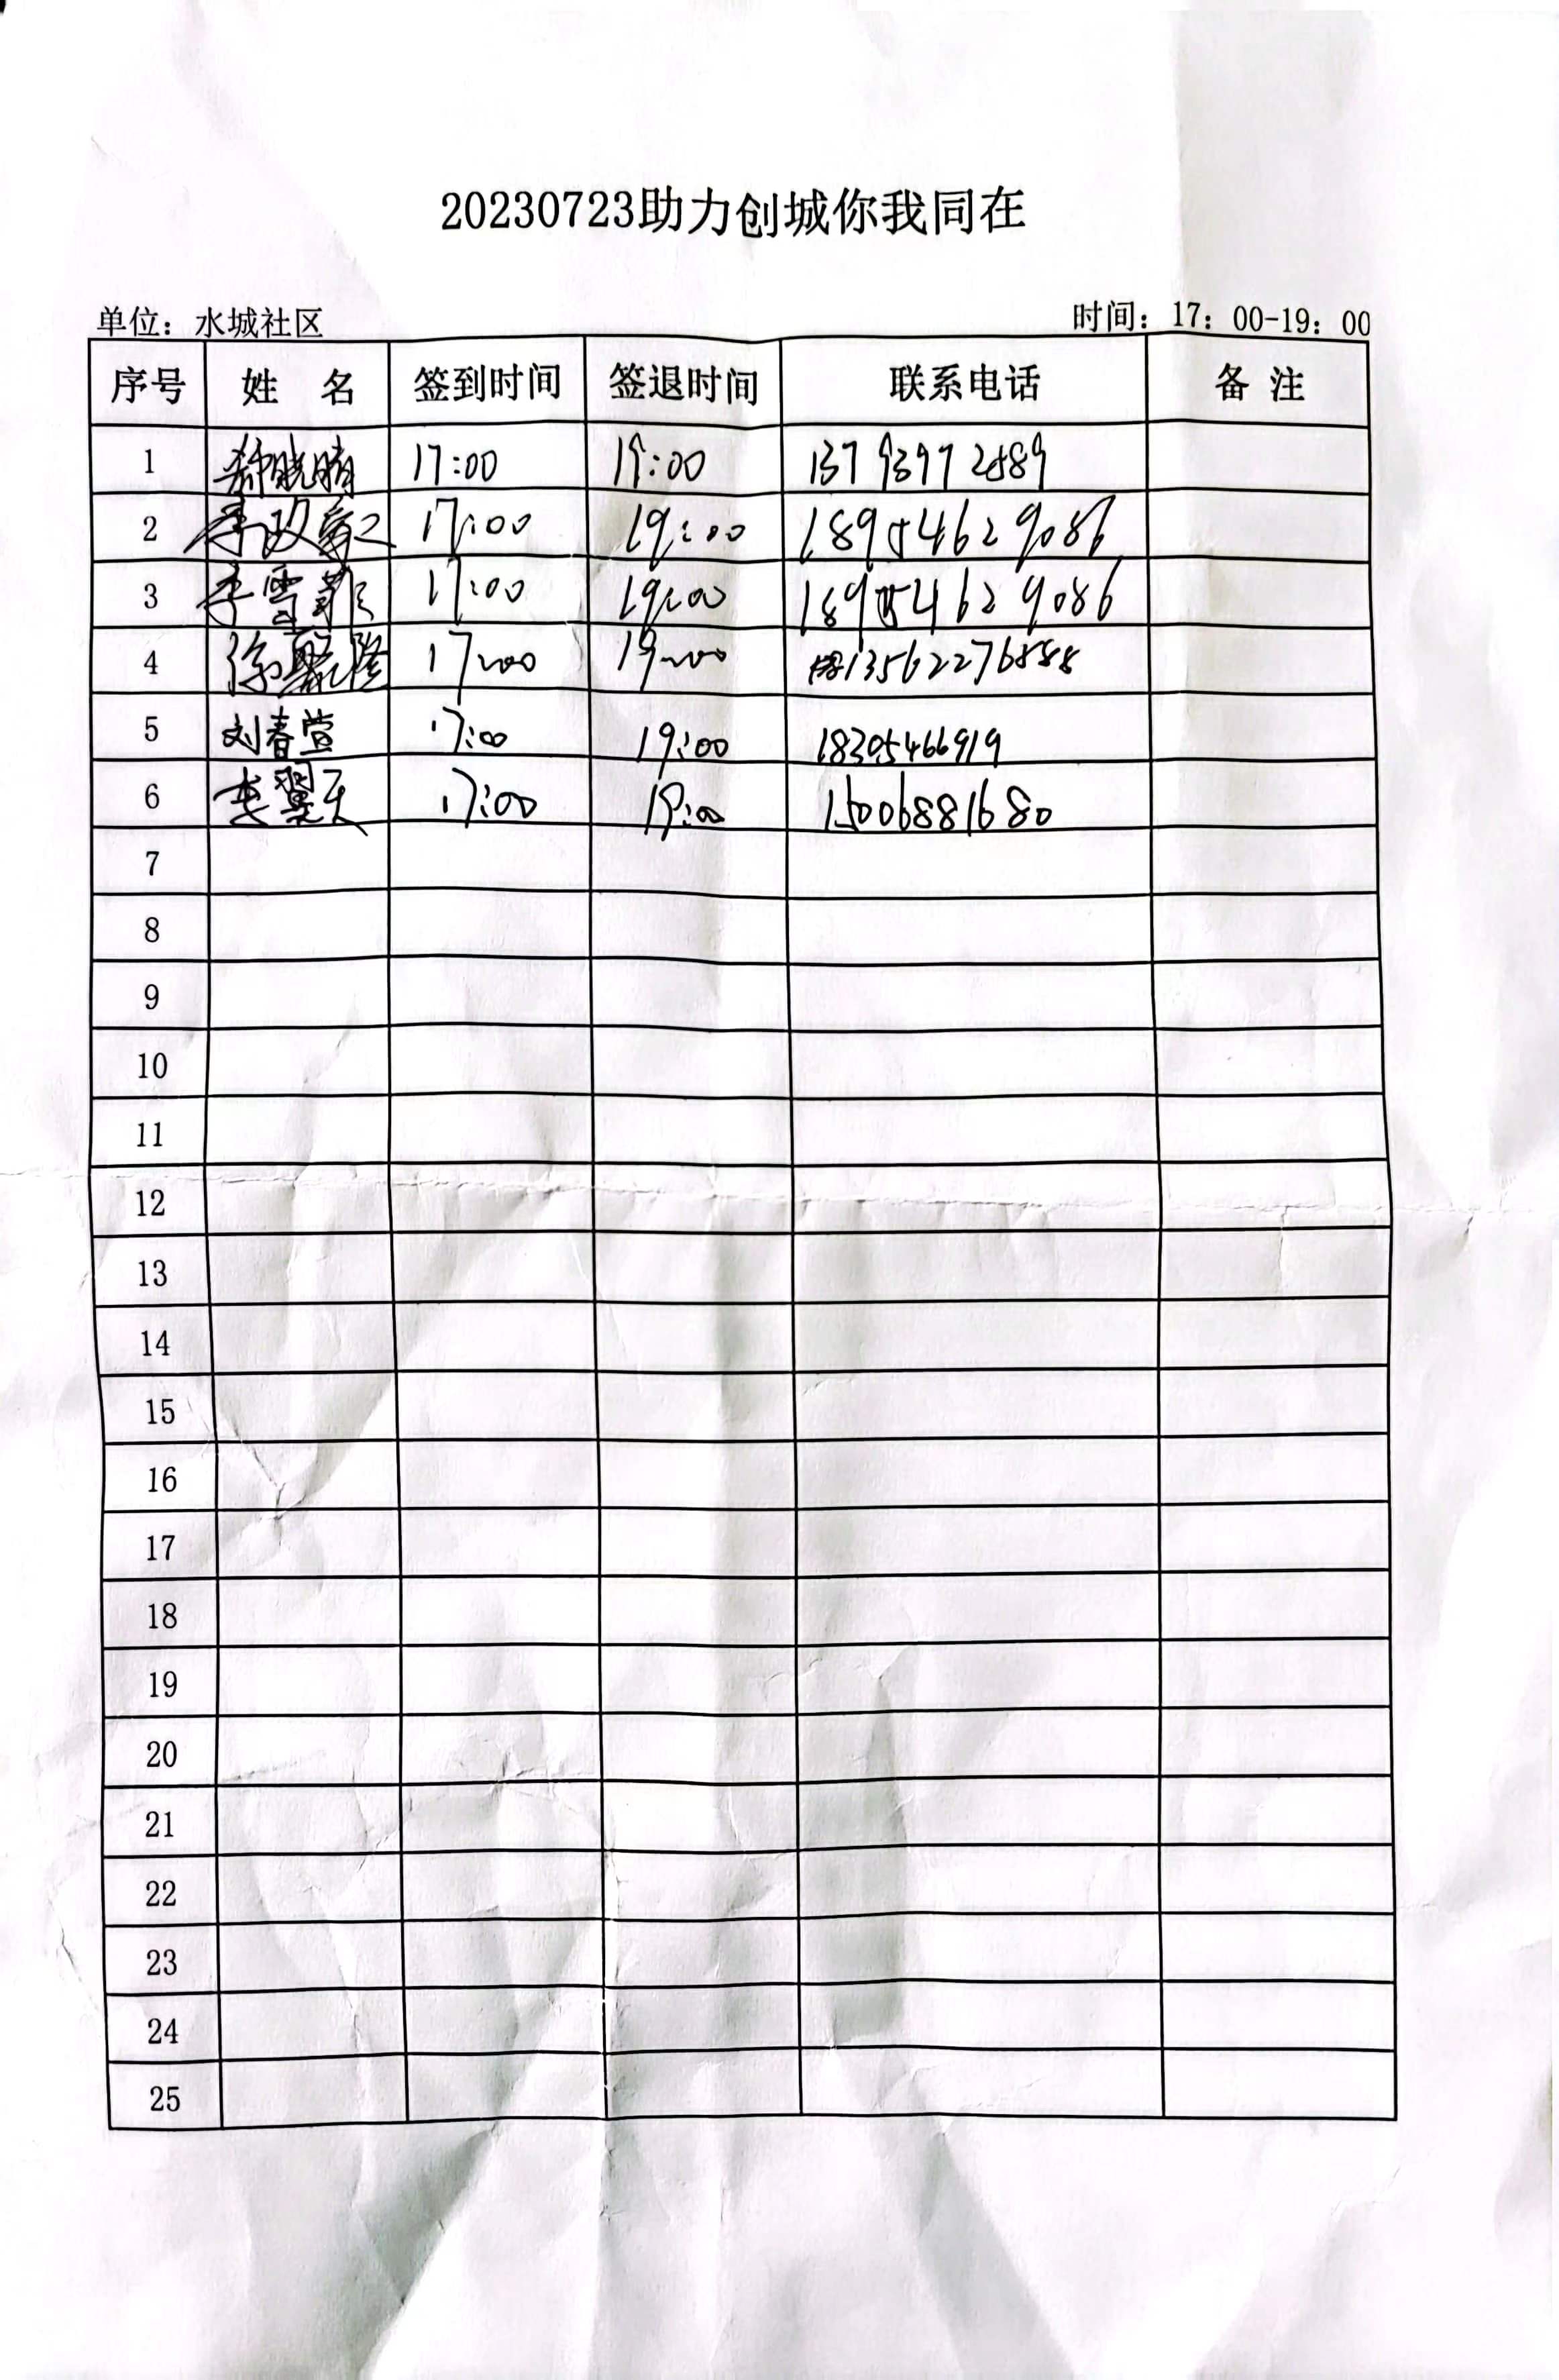 20230723助力创城你我同在
单位：水城社区 时间：17：00-19：00
序号 姓 名 签到时间 签退时间 联系电话 备 注
1 17:00 19:00 13793972889
2 17:00 19:00 18954629086
3 李雪菲 17:00 19:00 18954629086
4 17:00 19:00 13562276888
5 刘春萱 17:00 19:00 18305466919
6 李翼天 17:00 19:00 15006881680
7
8
9
10
11
12
13
14
15
16
17
18
19
20
21
22
23
24
25